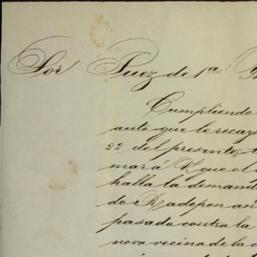 Sor Juez de 1ª
Cumpliendo
auto que le recayó
22 del presente,
mará V. que el
halla la demanda
do
pasada contra la
nova vecina de la